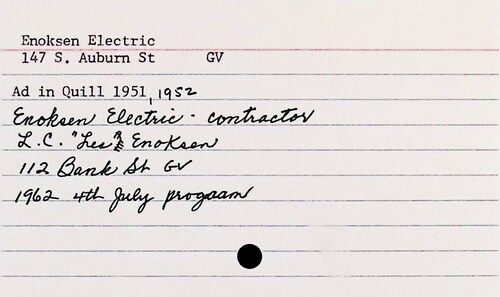 Enoksen Electric
147 S. Auburn St GV
Ad in Quill 1951, 1952
Enoksen Electric - contractor
L.C. "Les" Enoksen
112 Bank St GV
1962 4th July progaam